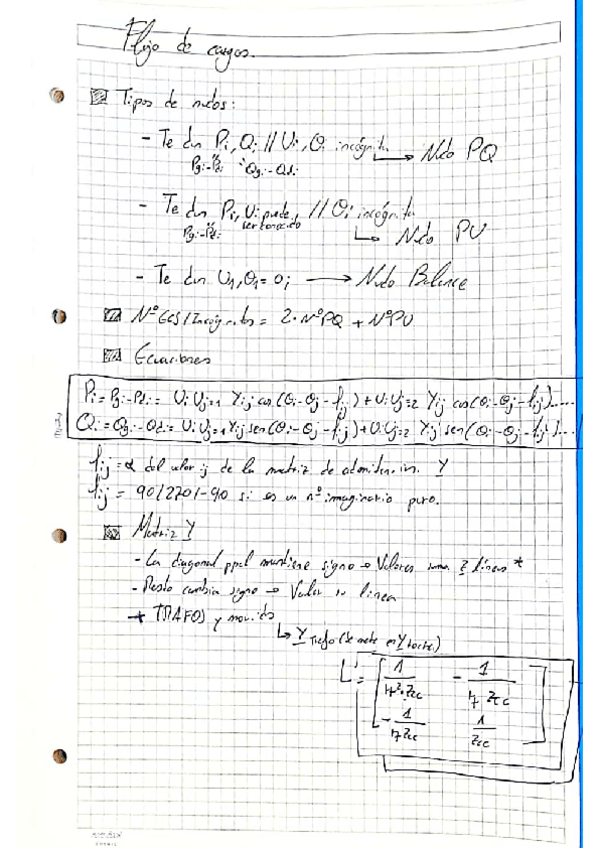 Flujo de cargas.
Tipos de nudos:
- Te dan Pi, Qi // Ui, θi incógnita → Nudo PQ
Pgi-Pdi Qgi-Qdi
- Te dan Pi, Ui puede // θi incógnita
Pgi-Pdi ser conocido → Nudo PU
- Te dan U1, θ1=0; → Nudo Balance
Nº Ecs/Incógnitas = 2·NºPQ + NºPU
Ecuaciones
Pi = Pgi-Pdi = Ui Uj=1 Yij cos(θi-θj-fij)+Ui Uj=2 Yij cos(θi-θj-fij)....
Qi = Qgi-Qdi = Ui Uj=1 Yij sen(θi-θj-fij)+Ui Uj=2 Yij sen(θi-θj-fij)...
fij = α del valor ij de la matriz de admitancias. Y
fij = 90/270/-90 si es un nº imaginario puro.
Matriz Y
- La diagonal ppal mantiene signo → Valores suma líneas *
- Resto cambia signo → Valor su línea
* TRAFOS y
↳ Y Trafo (se mete en Y
1/(r²·Zcc) -1/(r Zcc)
-1/(r Zcc) 1/Zcc